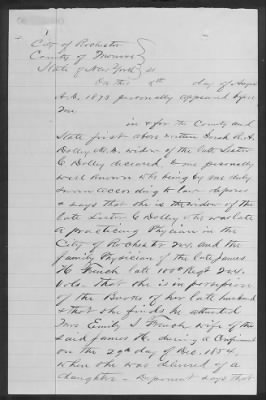 City of Rochester
County of Monroe
State of New York } ss
On this 8th day of August
A.D. 1893 personally appeared before
me
in & for the County and
State first above written Sarah R. A.
Dolley M.D. widow of the late Lester
C Dolley deceased, to me personally
well known who being by me duly
sworn according to law deposes
& says that she is the widow of the
late Lester C Dolley who was late
a practicing Physician in the
City of Rochester N.Y. and the
family Physician of the late James
H. French late 108th Regt N.Y.
Vols. That she is in possession
of the Books of her late husband
& that she finds he attended
Mrs Emily J. French wife of the
said James H. during a Confinement
on the 29th day of Dec. 1854,
when she was delivered of a
daughter - Deponent says that